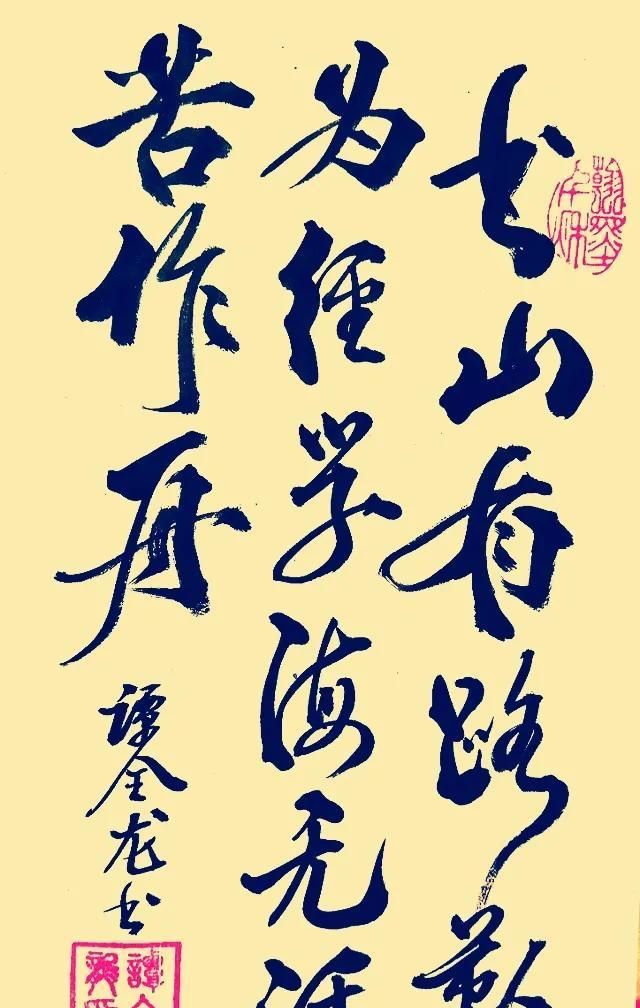 书山有路勤
为径学海无涯
苦作舟
谭金龙书